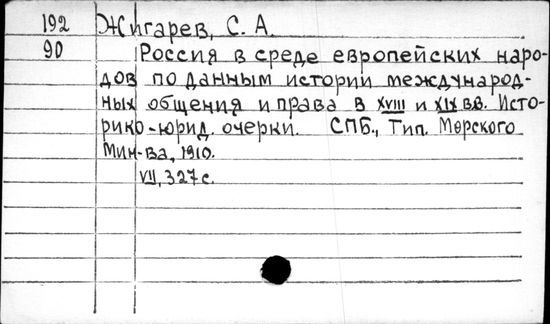 192 Жигарев, С. А.
90 Россия в среде европейских наро-
дов по данным истории международ-
ных общения и права в XVIII и XIX вв. Исто-
рико-юрид. очерки. СПБ., Тип. Морского
Мин-ва, 1910.
VII, 327 с.